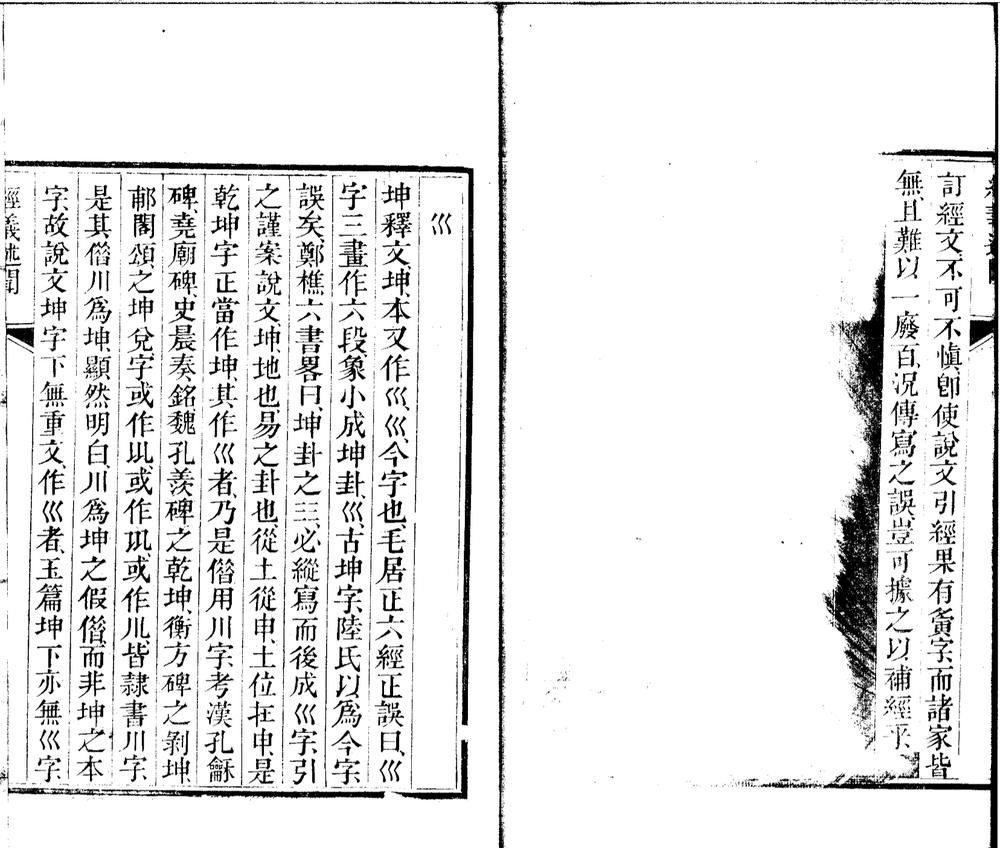 訂經文不可不愼、卽使說文引經果有夤字、而諸家皆
無、且難以一廢百、況傳寫之誤、豈可據之以補經乎、
巛
坤釋文、坤、本又作巛、巛、今字也、毛居正六經正誤曰、巛
字三畫作六段、象小成坤卦、巛、古坤字、陸氏以爲今字、
誤矣、鄭樵六書畧曰、坤卦之☷、必縱寫而後成巛字、引
之謹案說文坤、地也、易之卦也、從土從申、土位在申、是
乾坤字正當作坤、其作巛者、乃是借用川字、考漢孔龢
碑、堯廟碑、史晨奏銘魏孔羨碑之乾坤、衡方碑之剝坤、
郙閣頌之坤兌、字或作、或作、或作、皆隸書川字、
是其借川爲坤、顯然明白、川爲坤之假借、而非坤之本
字、故說文坤字下無重文、作巛者、玉篇坤下亦無巛字、
經義述聞